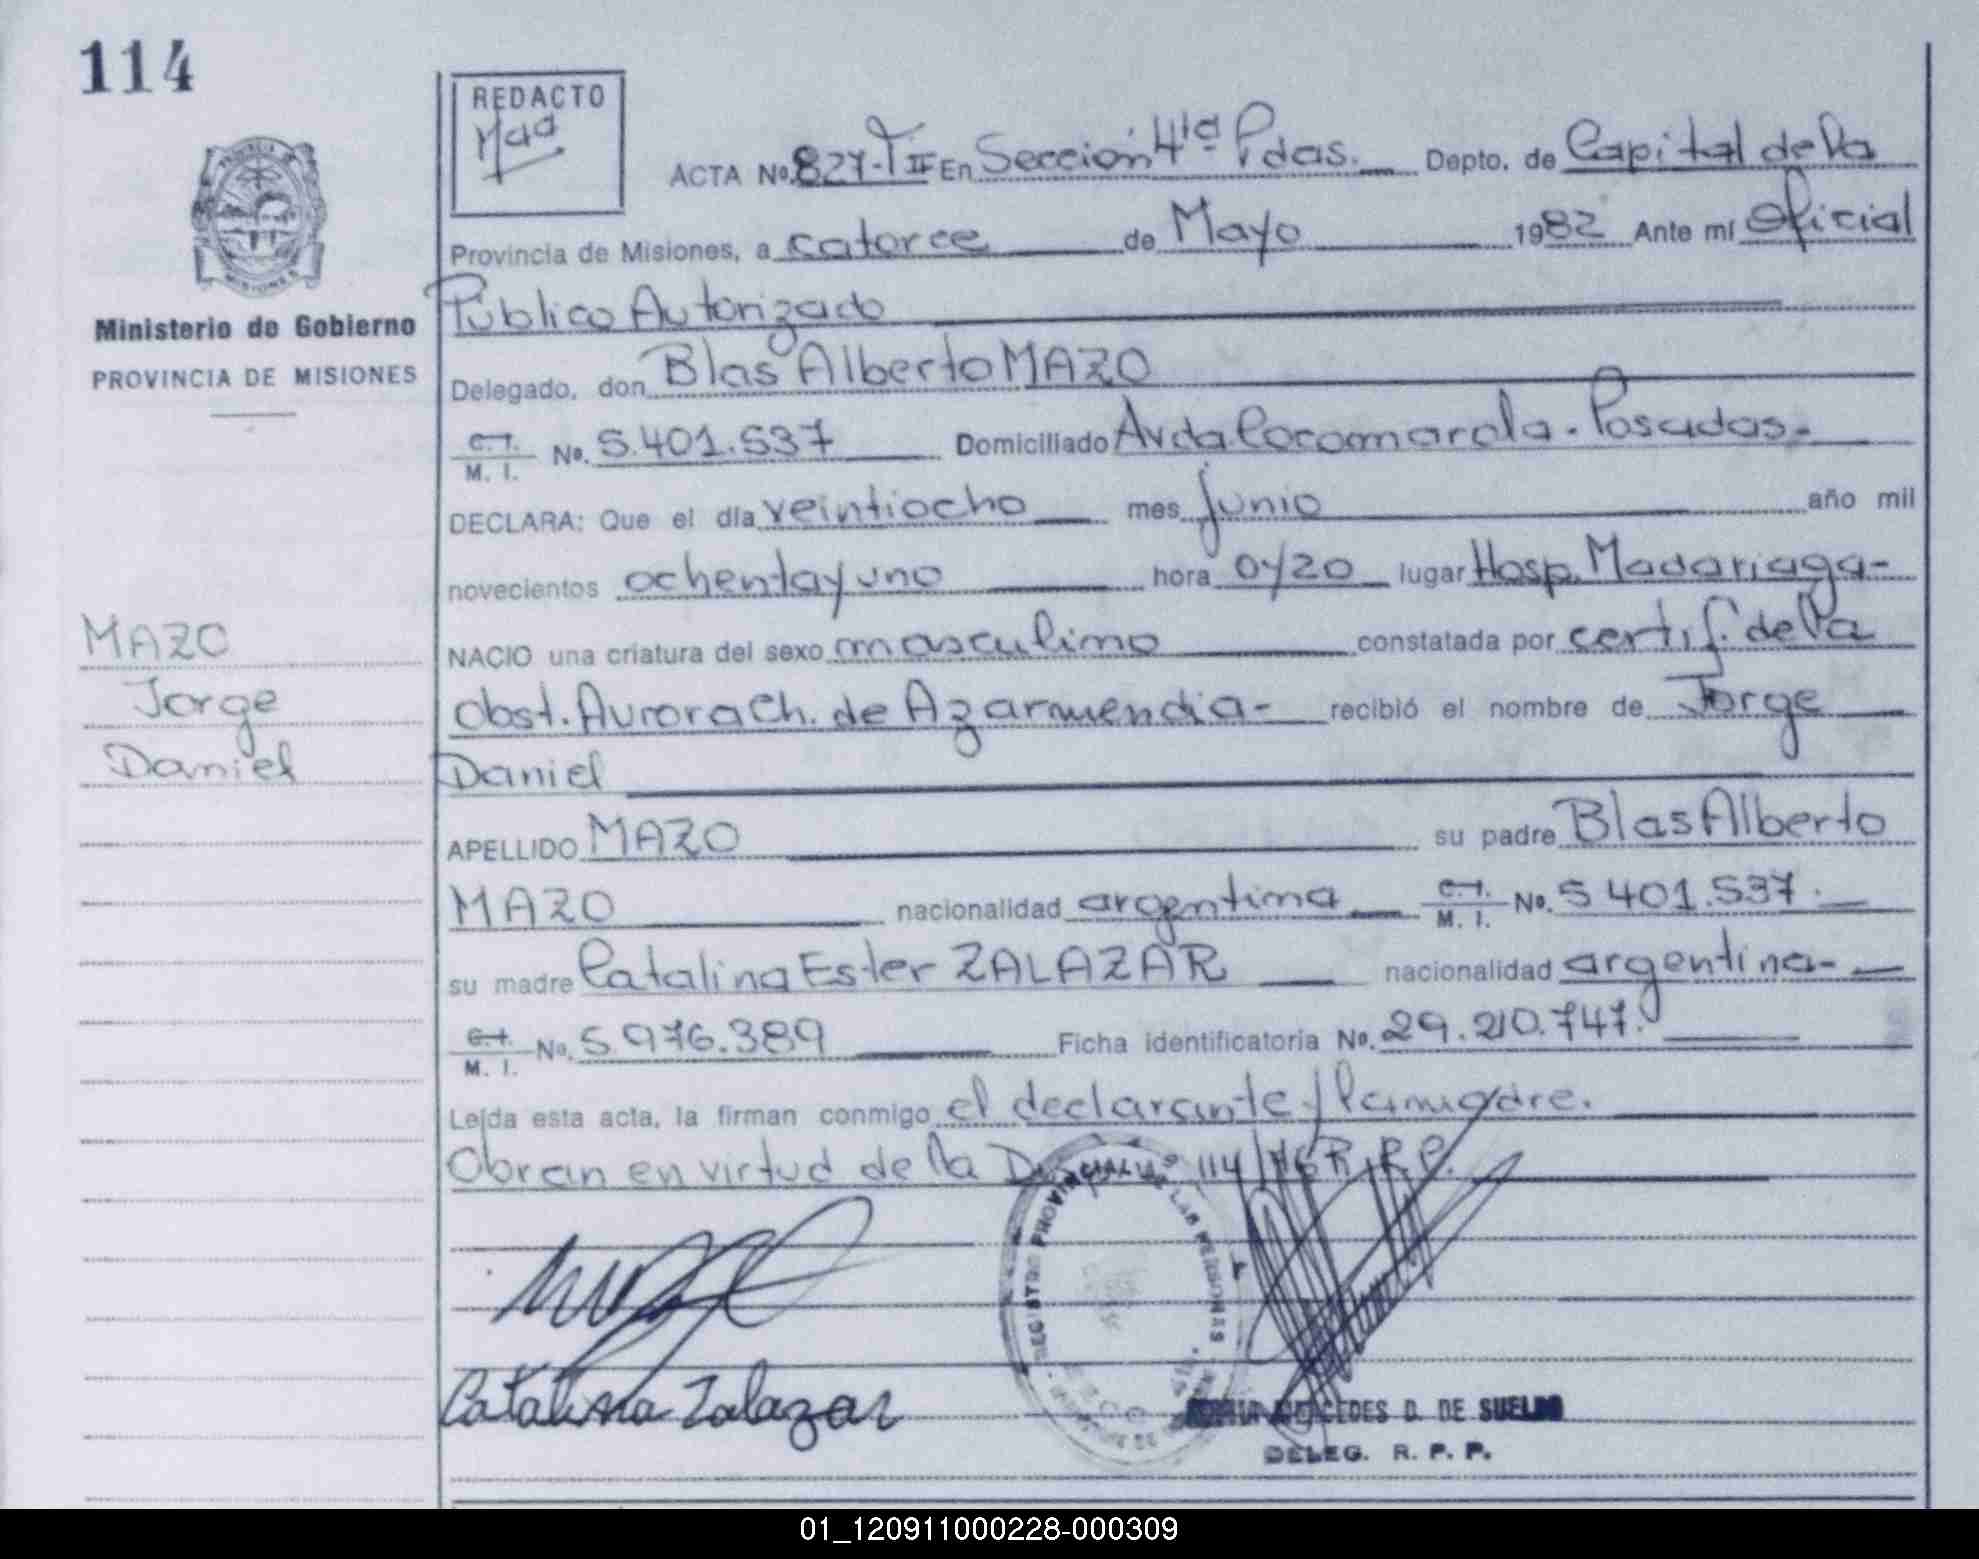 114
REDACTO
ACTA No. 827-T II En Sección 4ta Pdas. Depto. de Capital de la
Provincia de Misiones, a catorce de Mayo 1982 Ante mí Oficial
Público Autorizado
Ministerio de Gobierno
PROVINCIA DE MISIONES
Delegado, don Blas Alberto MAZO
C.I. M. I. No. 5.401.537 Domiciliado Avda Cocomarola - Posadas.-
DECLARA: Que el día veintiocho mes Junio año mil
novecientos ochenta y uno hora 0y20 lugar Hosp. Madariaga-
NACIO una criatura del sexo masculino constatada por certif. de la
Obst. Aurora Ch. de Azarmendia- recibió el nombre de Jorge
Daniel
MAZO
Jorge
Daniel
APELLIDO MAZO su padre Blas Alberto
MAZO nacionalidad argentina C.I. M. I. No. 5 401.537.
su madre Catalina Ester ZALAZAR nacionalidad argentina-
C.I. M. I. No. 5.976.389 Ficha identificatoria No. 29.210.747.
Leída esta acta, la firman conmigo el declarante y la madre.
Obran en virtud de la 114/ R.P.
REGISTRO PROVINCIAL DE LAS PERSONAS
Catalina Zalazar
MERCEDES D. DE SUELDO
DELEG. R. P. P.
01_120911000228-000309